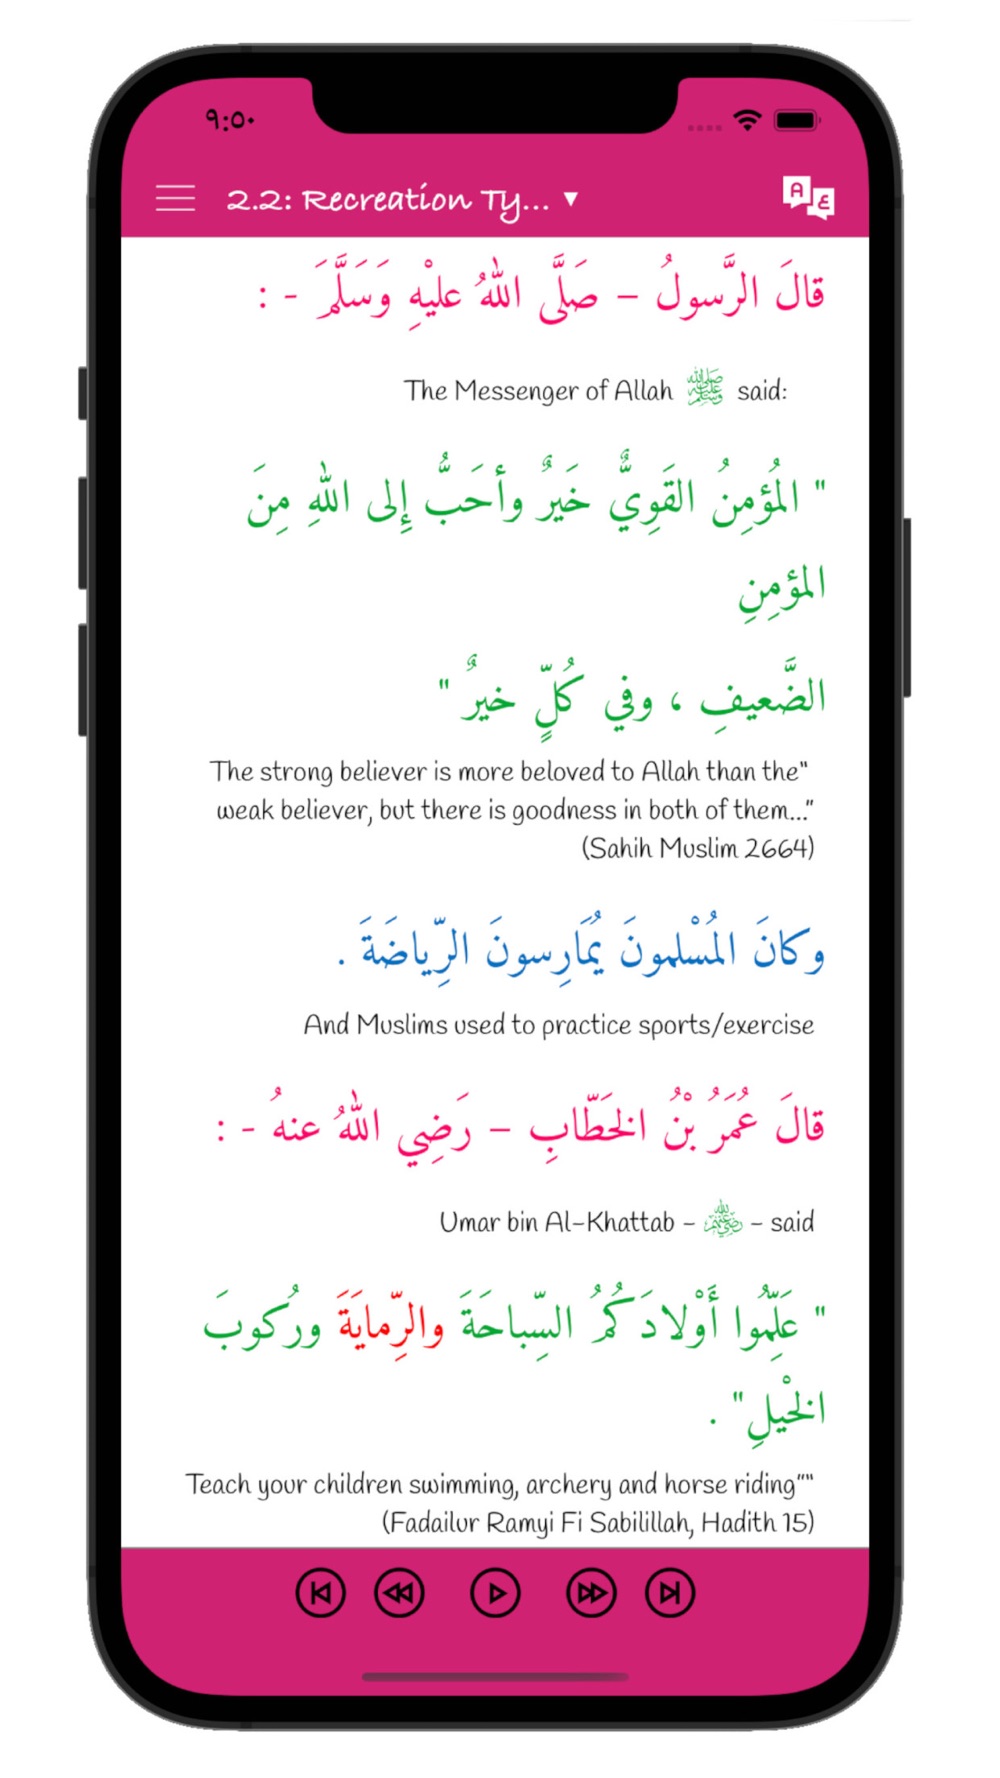 ٩:٥٠
2.2: Recreation Ty... ▼
A ع
قالَ الرَّسولُ – صَلَّى اللهُ عليْهِ وَسَلَّمَ - :
The Messenger of Allah ﷺ said:
" المُؤمِنُ القَوِيُّ خَيرٌ وأحَبُّ إِلى اللهِ مِنَ
المؤمِنِ
الضَّعيفِ ، وفي كُلٍّ خيرٌ "
The strong believer is more beloved to Allah than the"
weak believer, but there is goodness in both of them..."
(Sahih Muslim 2664)
وكانَ المُسْلمونَ يُمَارِسونَ الرِّياضَةَ .
And Muslims used to practice sports/exercise
قالَ عُمَرُ بْنُ الخَطّابِ – رَضِي اللهُ عنهُ - :
Umar bin Al-Khattab - رضي الله عنه - said
" عَلِّمُوا أَوْلادَكُمُ السِّباحَةَ والرِّمايَةَ ورُكوبَ
الخْيلِ" .
Teach your children swimming, archery and horse riding""
(Fadailur Ramyi Fi Sabilillah, Hadith 15)